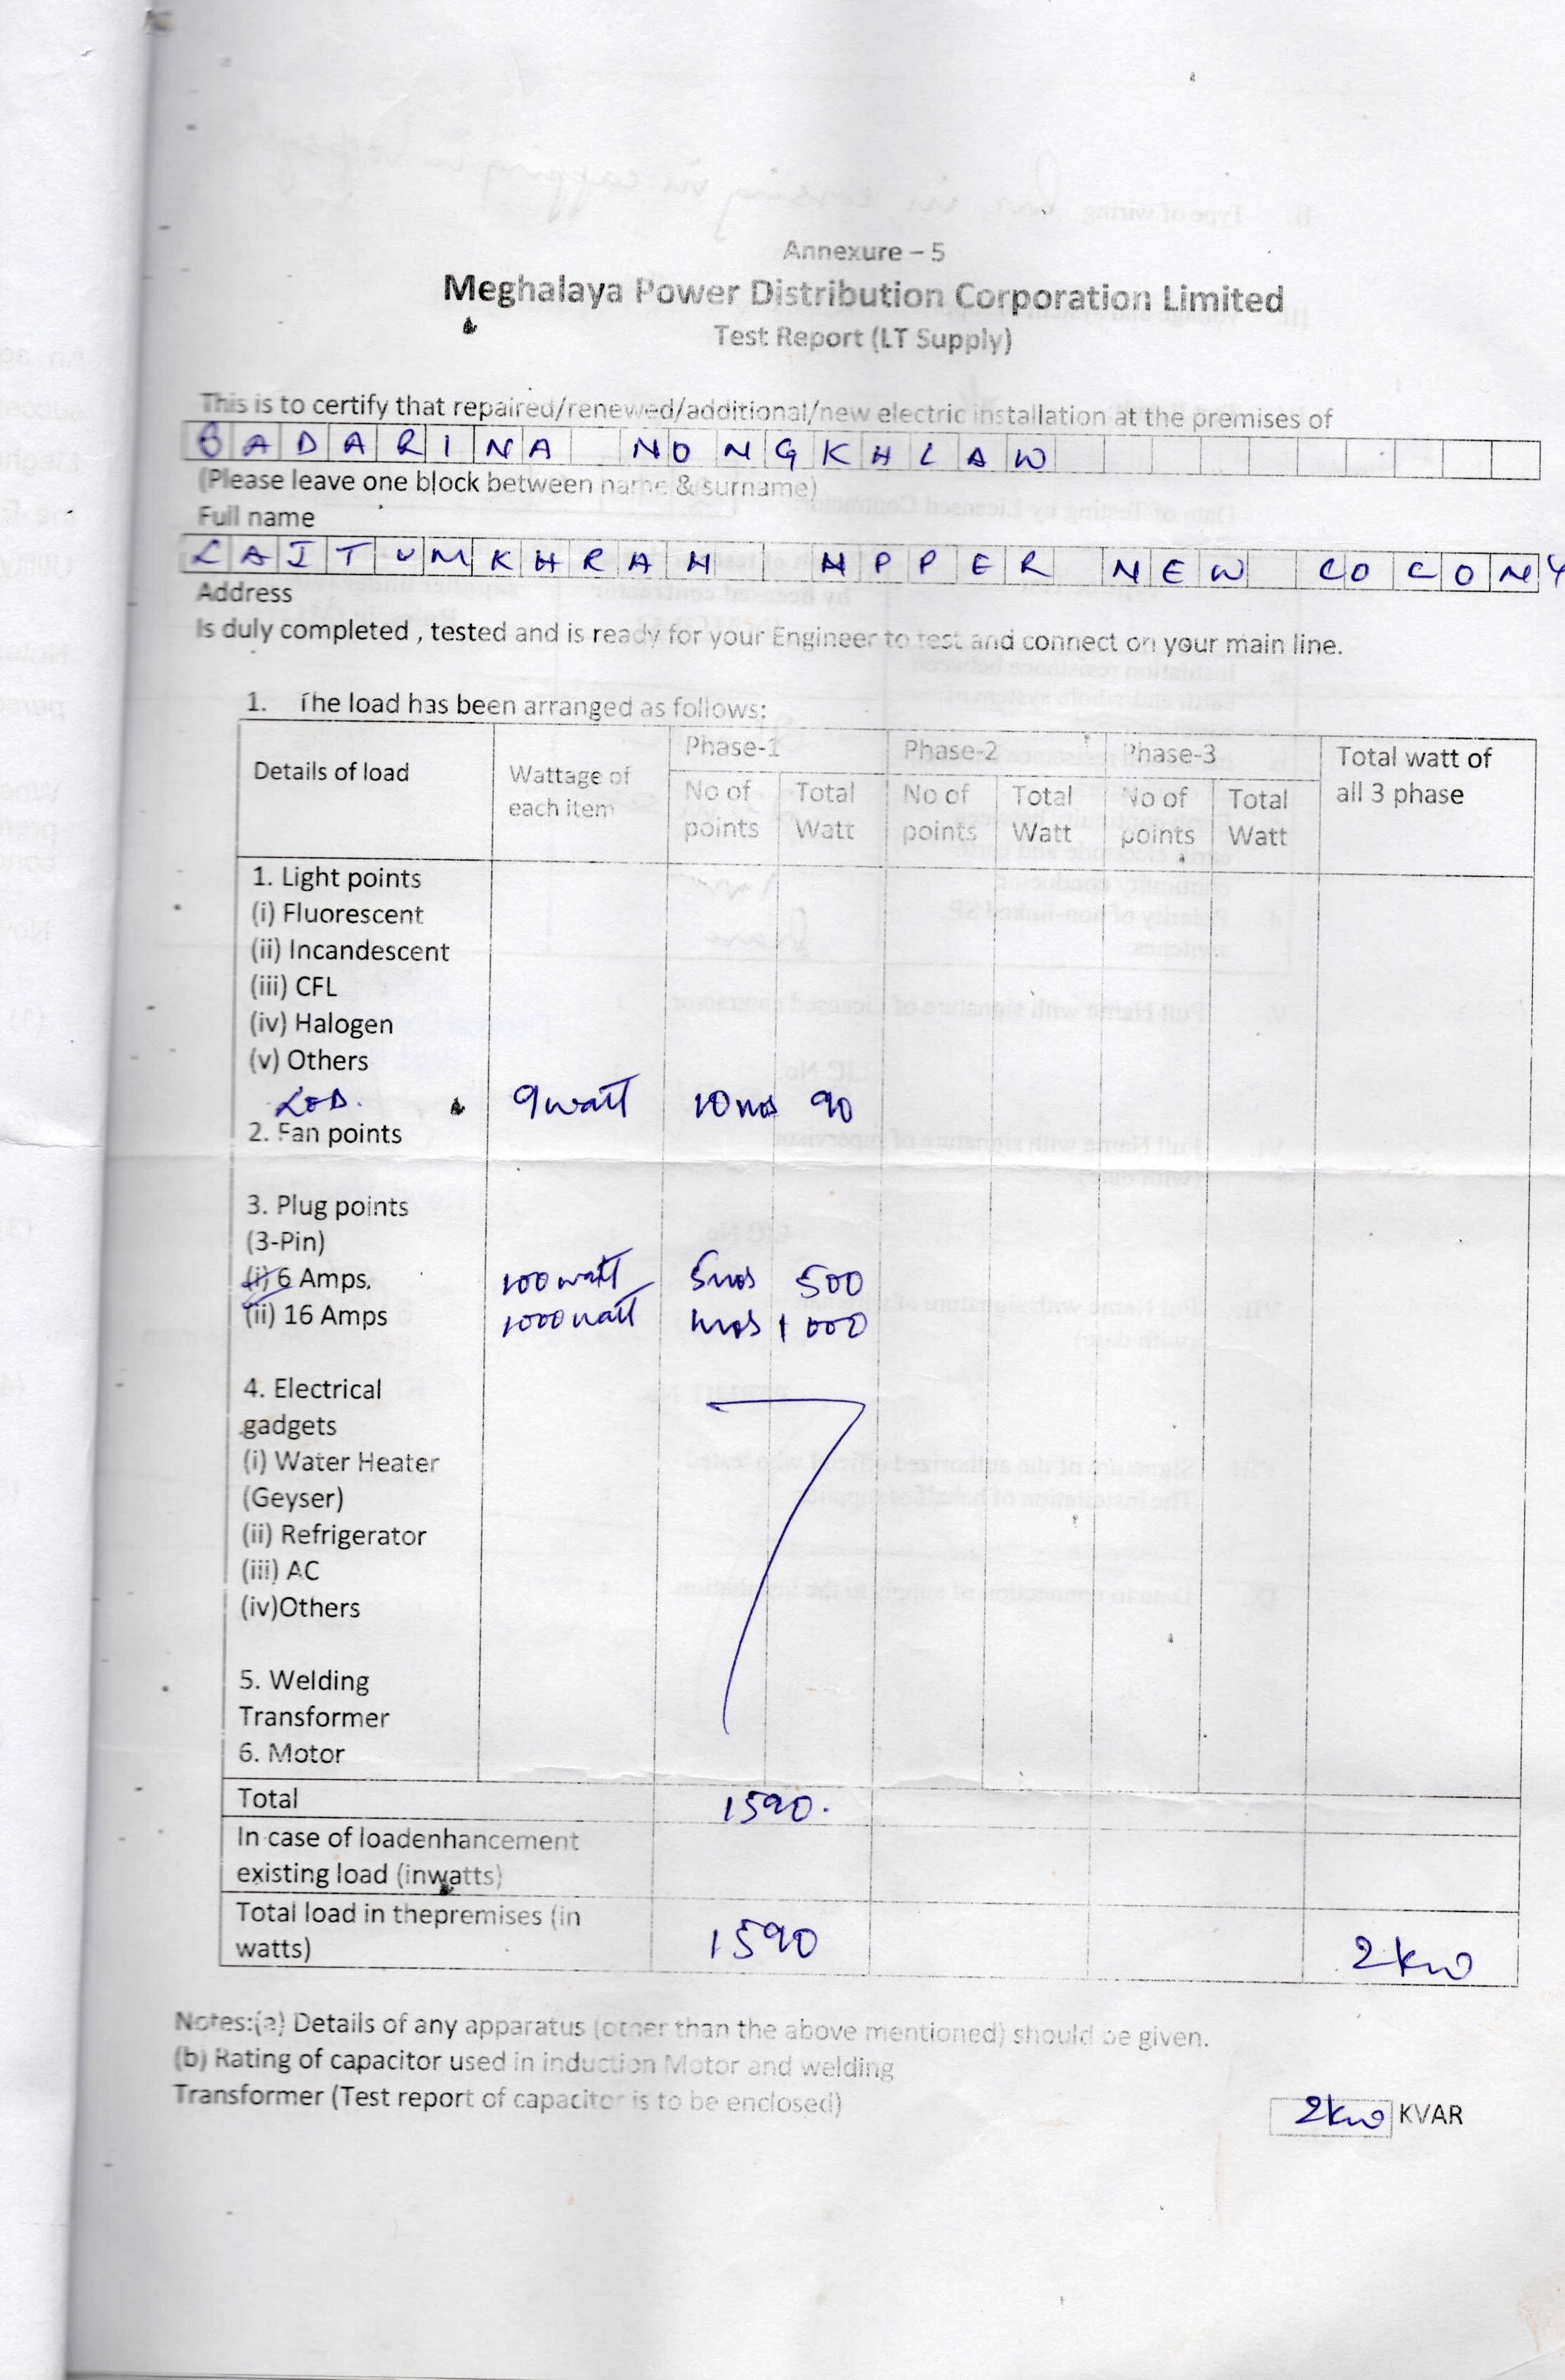 Annexure – 5
Meghalaya Power Distribution Corporation Limited
Test Report (LT Supply)
This is to certify that repaired/renewed/additional/new electric installation at the premises of
BADARINA NONGKHLAW
(Please leave one block between name & surname)
Full name
LAITUMKHRAH HPPER NEW COCONY
Address
Is duly completed , tested and is ready for your Engineer to test and connect on your main line.
1. The load has been arranged as follows:
Details of load Wattage of each item Phase-1 Phase-2 Phase-3 Total watt of all 3 phase
No of points Total Watt No of points Total Watt No of points Total Watt
1. Light points
(i) Fluorescent
(ii) Incandescent
(iii) CFL
(iv) Halogen
(v) Others
LED. 9watt 10nos 90
2. Fan points
3. Plug points
(3-Pin)
(i) 6 Amps. 100watt 5nos 500
(ii) 16 Amps 1000watt 1nos 1000
4. Electrical
gadgets
(i) Water Heater
(Geyser)
(ii) Refrigerator
(iii) AC
(iv)Others
5. Welding
Transformer
6. Motor
Total 1590.
In case of loadenhancement
existing load (inwatts)
Total load in thepremises (in
watts) 1590 2kw
Notes:(a) Details of any apparatus (other than the above mentioned) should be given.
(b) Rating of capacitor used in induction Motor and welding
Transformer (Test report of capacitor is to be enclosed)
2kw KVAR